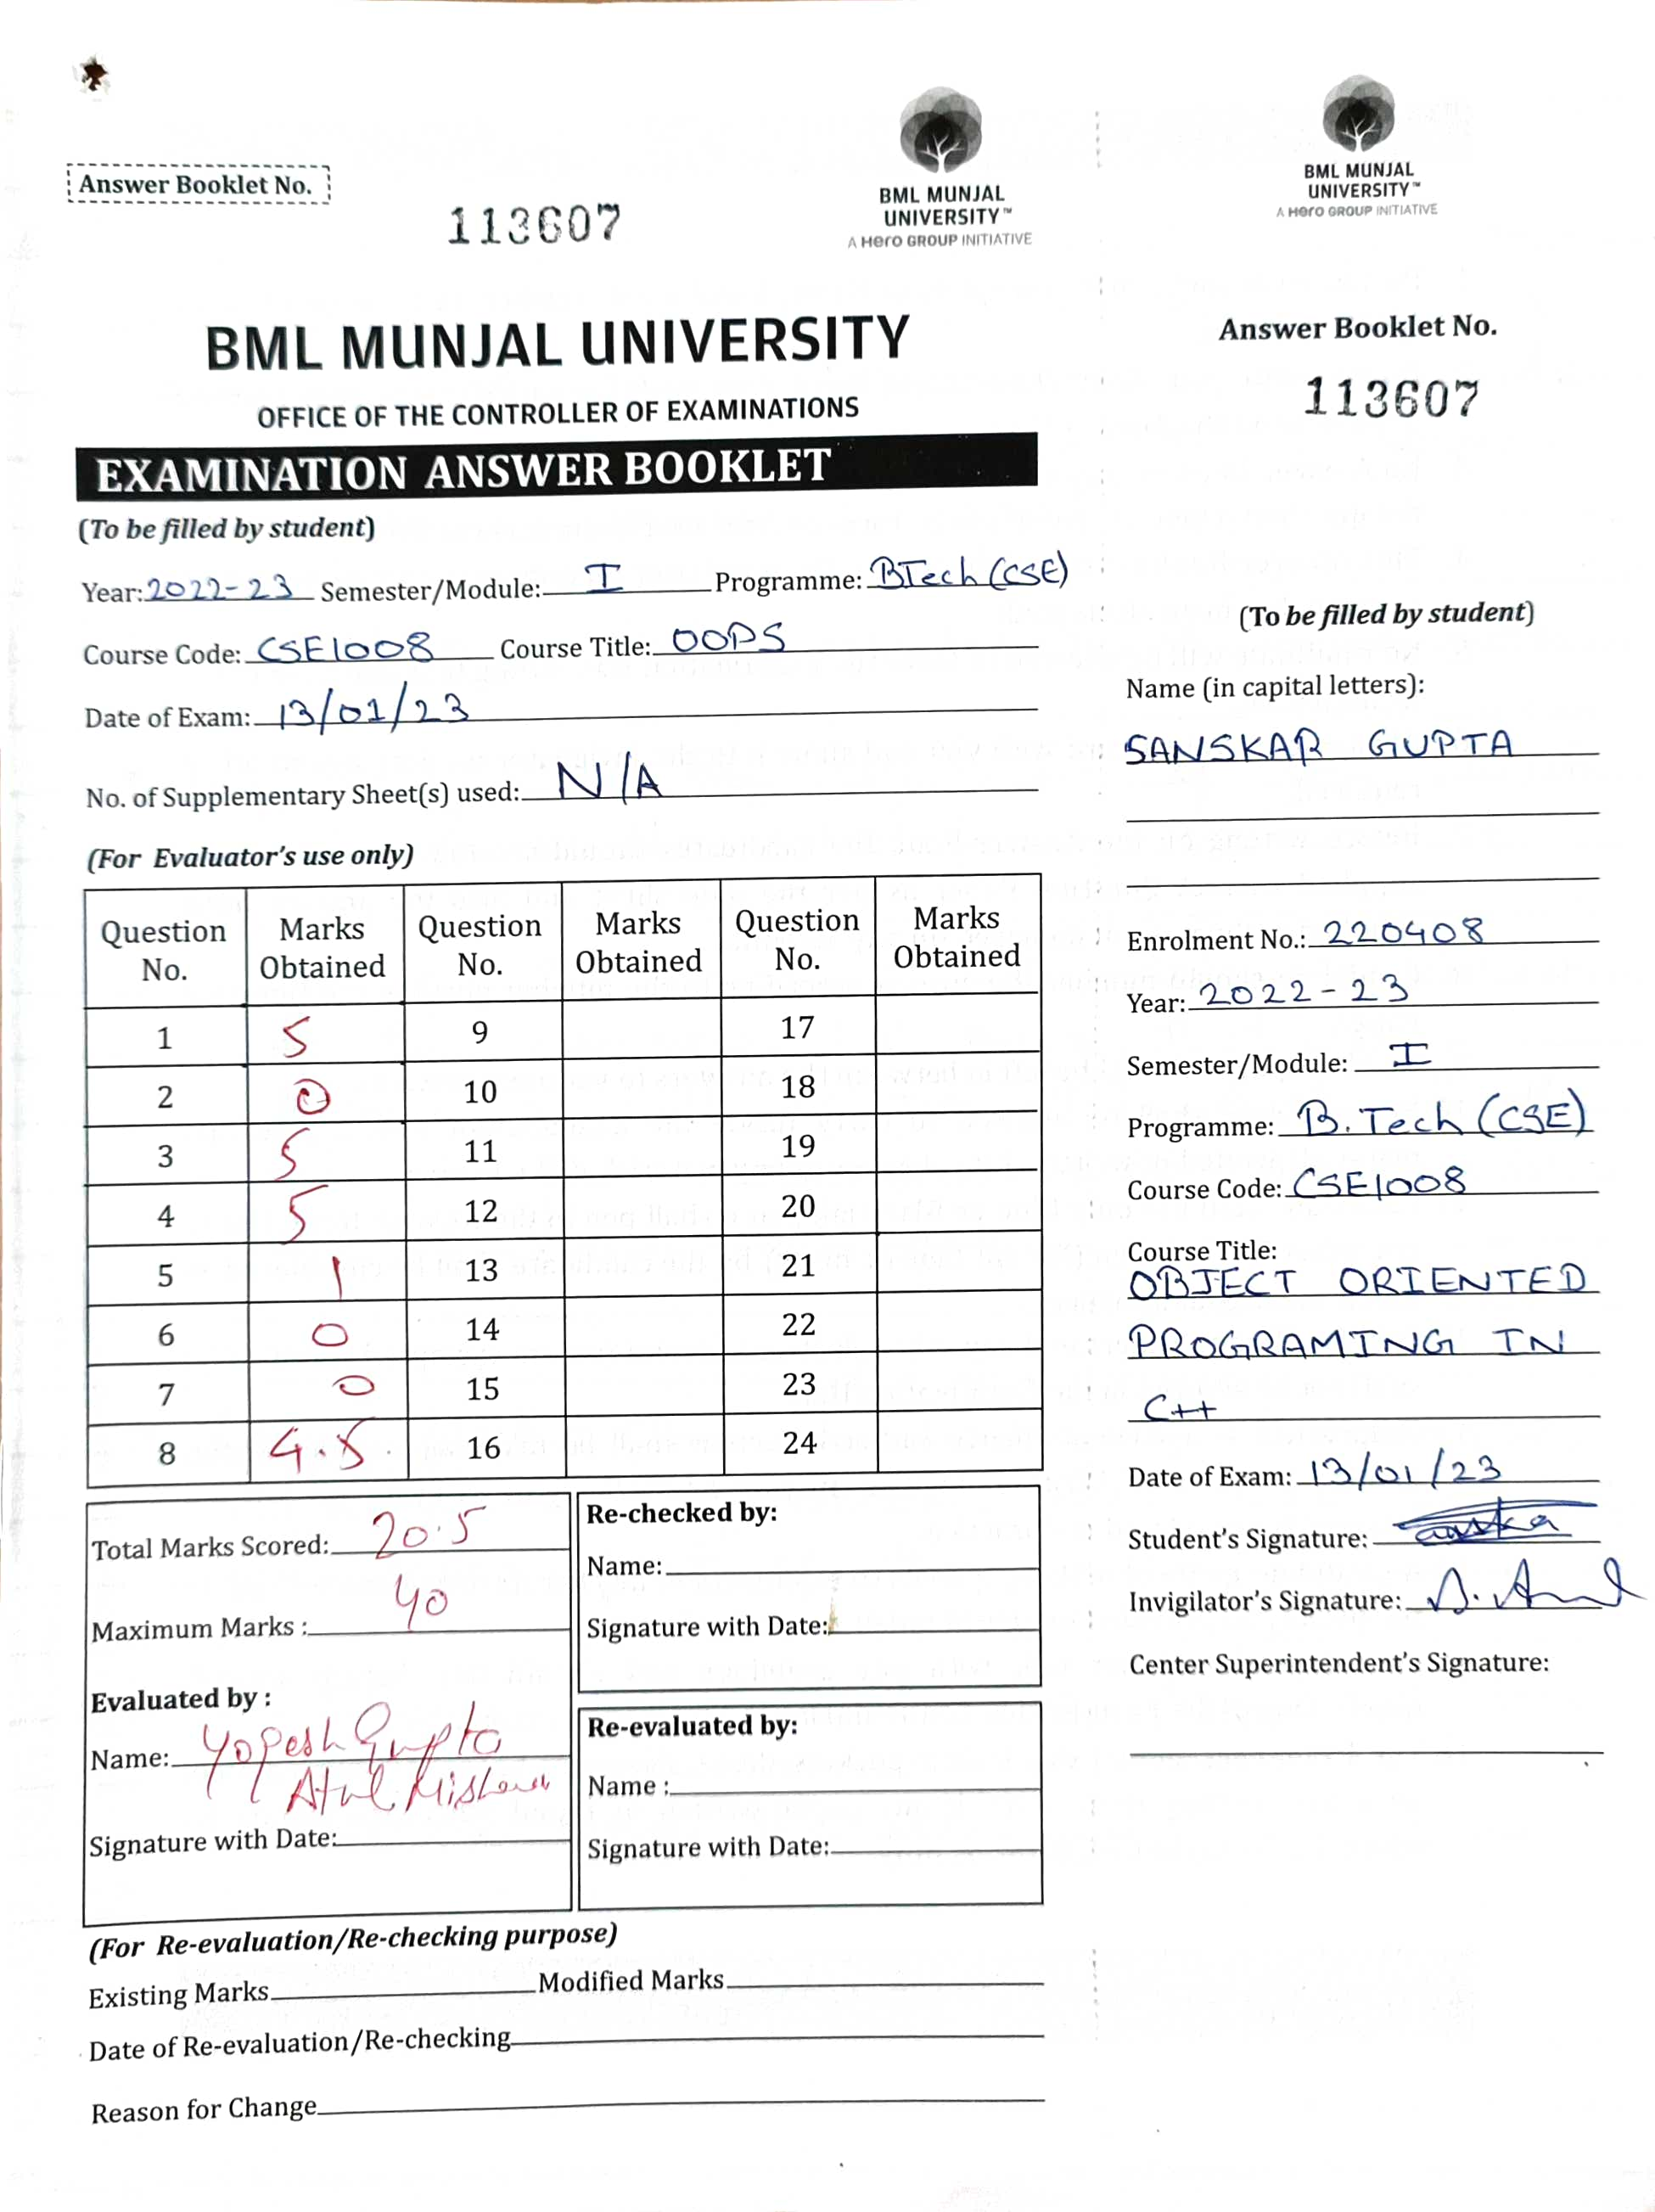 Answer Booklet No.
113607
BML MUNJAL
UNIVERSITY™
A Hero GROUP INITIATIVE
BML MUNJAL UNIVERSITY
OFFICE OF THE CONTROLLER OF EXAMINATIONS
EXAMINATION ANSWER BOOKLET
(To be filled by student)
Year: 2022-23 Semester/Module: I Programme: BTech (CSE)
Course Code: CSE1008 Course Title: OOPS
Date of Exam: 13/01/23
No. of Supplementary Sheet(s) used: N/A
(For Evaluator's use only)
Question No. Marks Obtained Question No. Marks Obtained Question No. Marks Obtained
1 5 9 17
2 0 10 18
3 5 11 19
4 5 12 20
5 1 13 21
6 0 14 22
7 0 15 23
8 4.5 16 24
Total Marks Scored: 20.5
Maximum Marks : 40
Evaluated by :
Name: Yogesh Gupta
Atul Mishra
Signature with Date:
Re-checked by:
Name:
Signature with Date:
Re-evaluated by:
Name :
Signature with Date:
(For Re-evaluation/Re-checking purpose)
Existing Marks Modified Marks
Date of Re-evaluation/Re-checking
Reason for Change
BML MUNJAL
UNIVERSITY™
A Hero GROUP INITIATIVE
Answer Booklet No.
113607
(To be filled by student)
Name (in capital letters):
SANSKAR GUPTA
Enrolment No.: 220408
Year: 2022-23
Semester/Module: I
Programme: B.Tech (CSE)
Course Code: CSE1008
Course Title:
OBJECT ORIENTED
PROGRAMING IN
C++
Date of Exam: 13/01/23
Student's Signature:
Invigilator's Signature:
Center Superintendent's Signature: